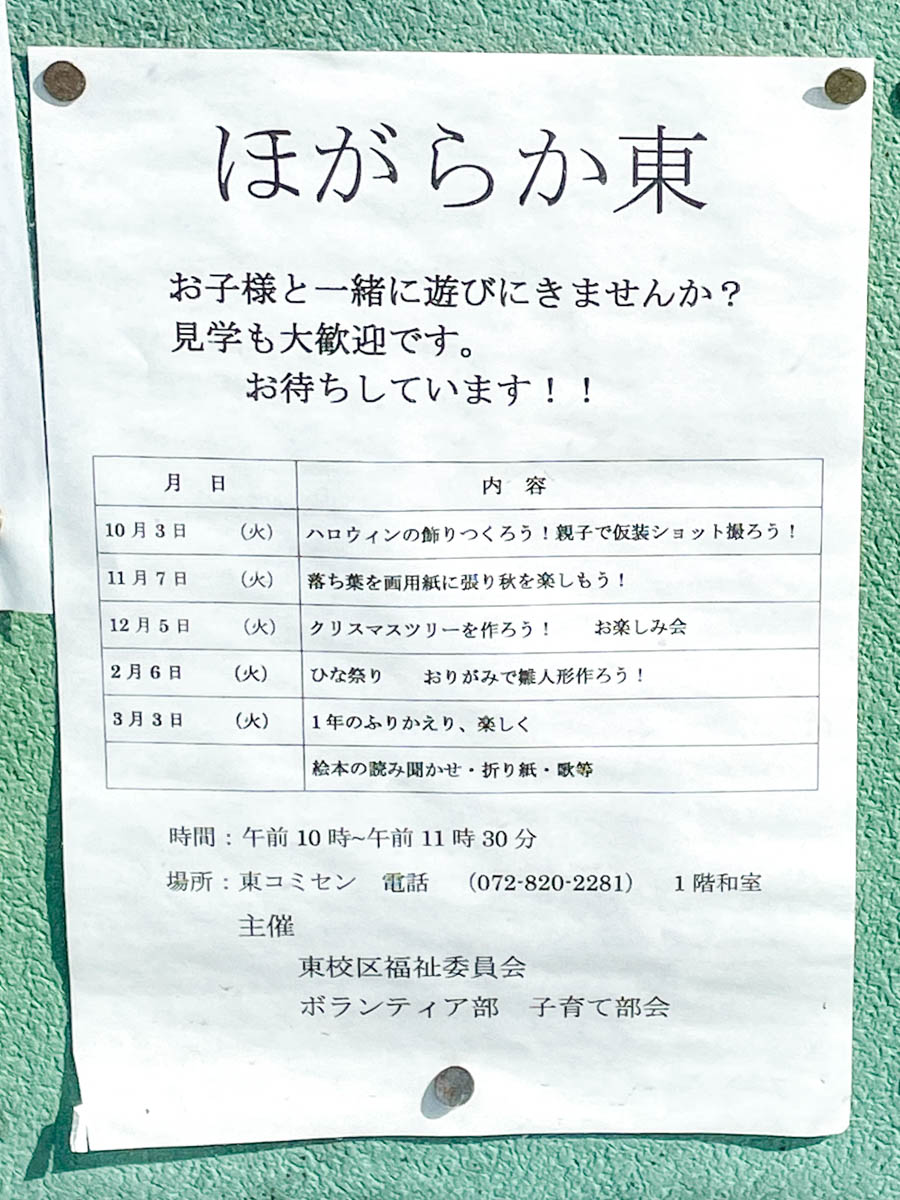 ほがらか東
お子様と一緒に遊びにきませんか？
見学も大歓迎です。
お待ちしています！！
月 日 内 容
10月3日 （火） ハロウィンの飾りつくろう！親子で仮装ショット撮ろう！
11月7日 （火） 落ち葉を画用紙に張り秋を楽しもう！
12月5日 （火） クリスマスツリーを作ろう！ お楽しみ会
2月6日 （火） ひな祭り おりがみで雛人形作ろう！
3月3日 （火） 1年のふりかえり、楽しく
絵本の読み聞かせ・折り紙・歌等
時間：午前10時~午前11時30分
場所：東コミセン 電話 （072-820-2281） 1階和室
主催
東校区福祉委員会
ボランティア部 子育て部会